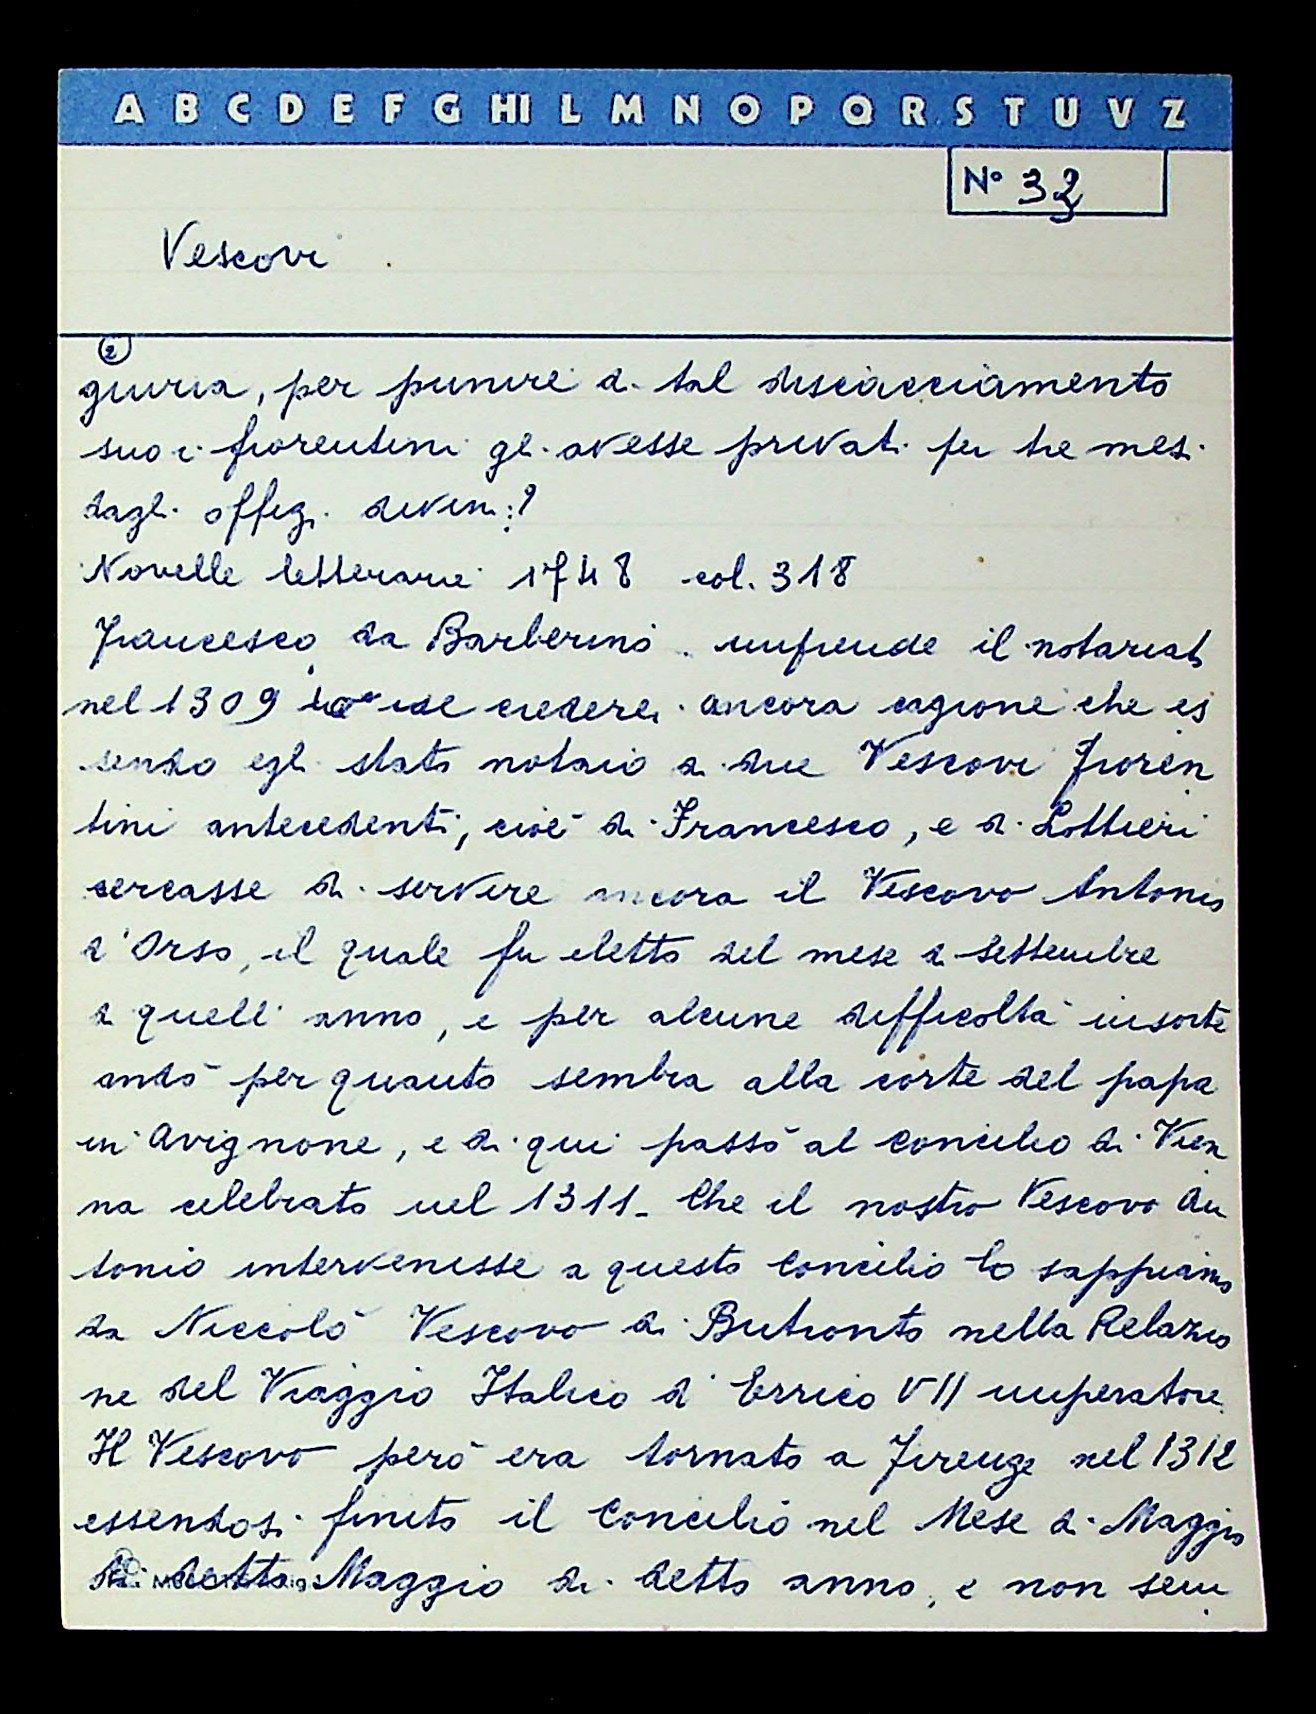 A B C D E F G HI L M N O P Q R S T U V Z
N° 32
Vescovi
2
giuria, per punire di tal discacciamento
suo i fiorentini gli avesse privati per tre mesi
dagli offizi divini:?
Novelle letterarie 1748 col. 318
Francesco da Barberino. imprende il notariato
nel 1309 credere, ancora cagione che es
sendo egli stato notaio di due Vescovi Fioren
tini antecedenti, cioè di Francesco, e di Lottieri
cercasse di servire ancora il Vescovo Antonio
d'Orso, il quale fu eletto del mese di Settembre
di quell'anno, e per alcune difficoltà insorte
andò per quanto sembra alla corte del papa
in Avignone, e di qui passò al Concilio di Vien
na celebrato nel 1311. Che il nostro Vescovo An
tonio intervenisse a questo Concilio lo sappiamo
da Niccolò Vescovo di Butronto nella Relazio
ne del Viaggio Italico d'Errico VII imperatore
Il Vescovo però era tornato a Firenze nel 1312
essendosi finito il Concilio nel Mese di Maggio
di detto Maggio di detto anno, e non sem